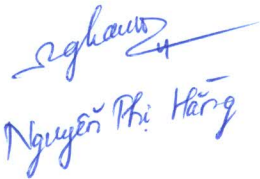 Nguyễn Phị Hằng